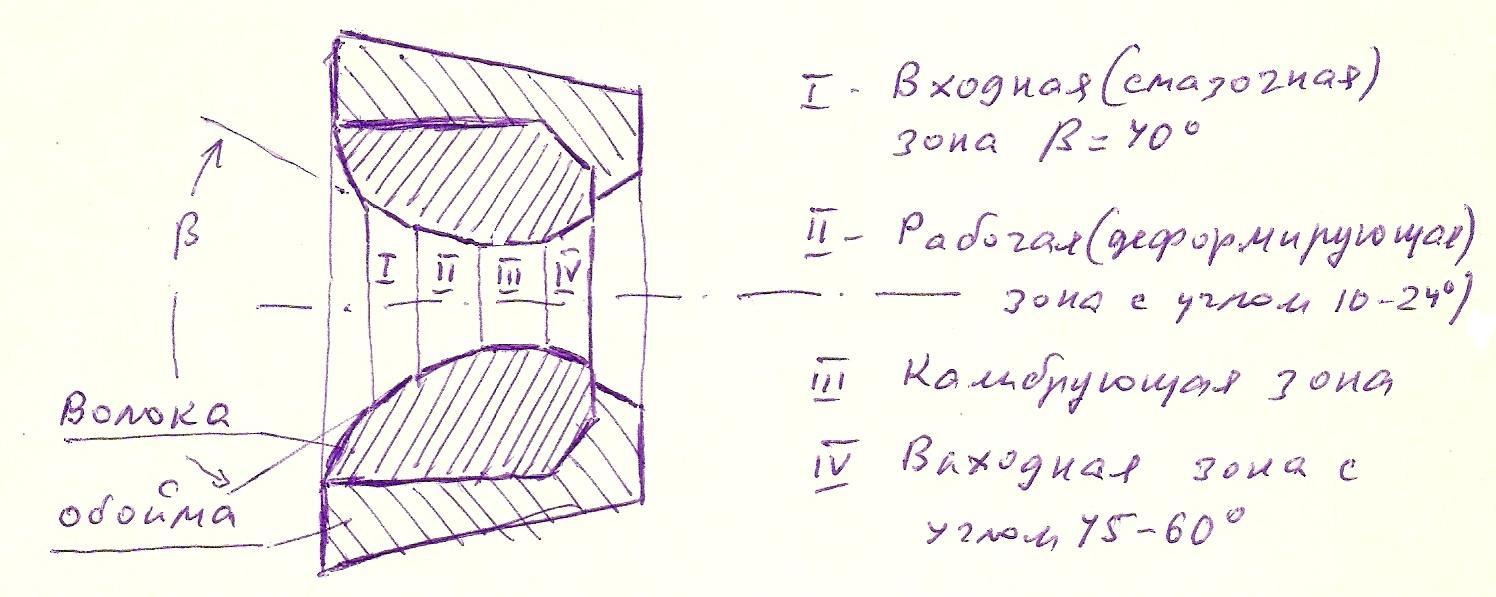 β
I
II
III
IV
Волока
обойма
I - Входная (смазочная)
зона β = 40°
II - Рабочая (деформирующая)
зона с углом 10-24°)
III Калибрующая зона
IV Выходная зона с
углом 45-60°